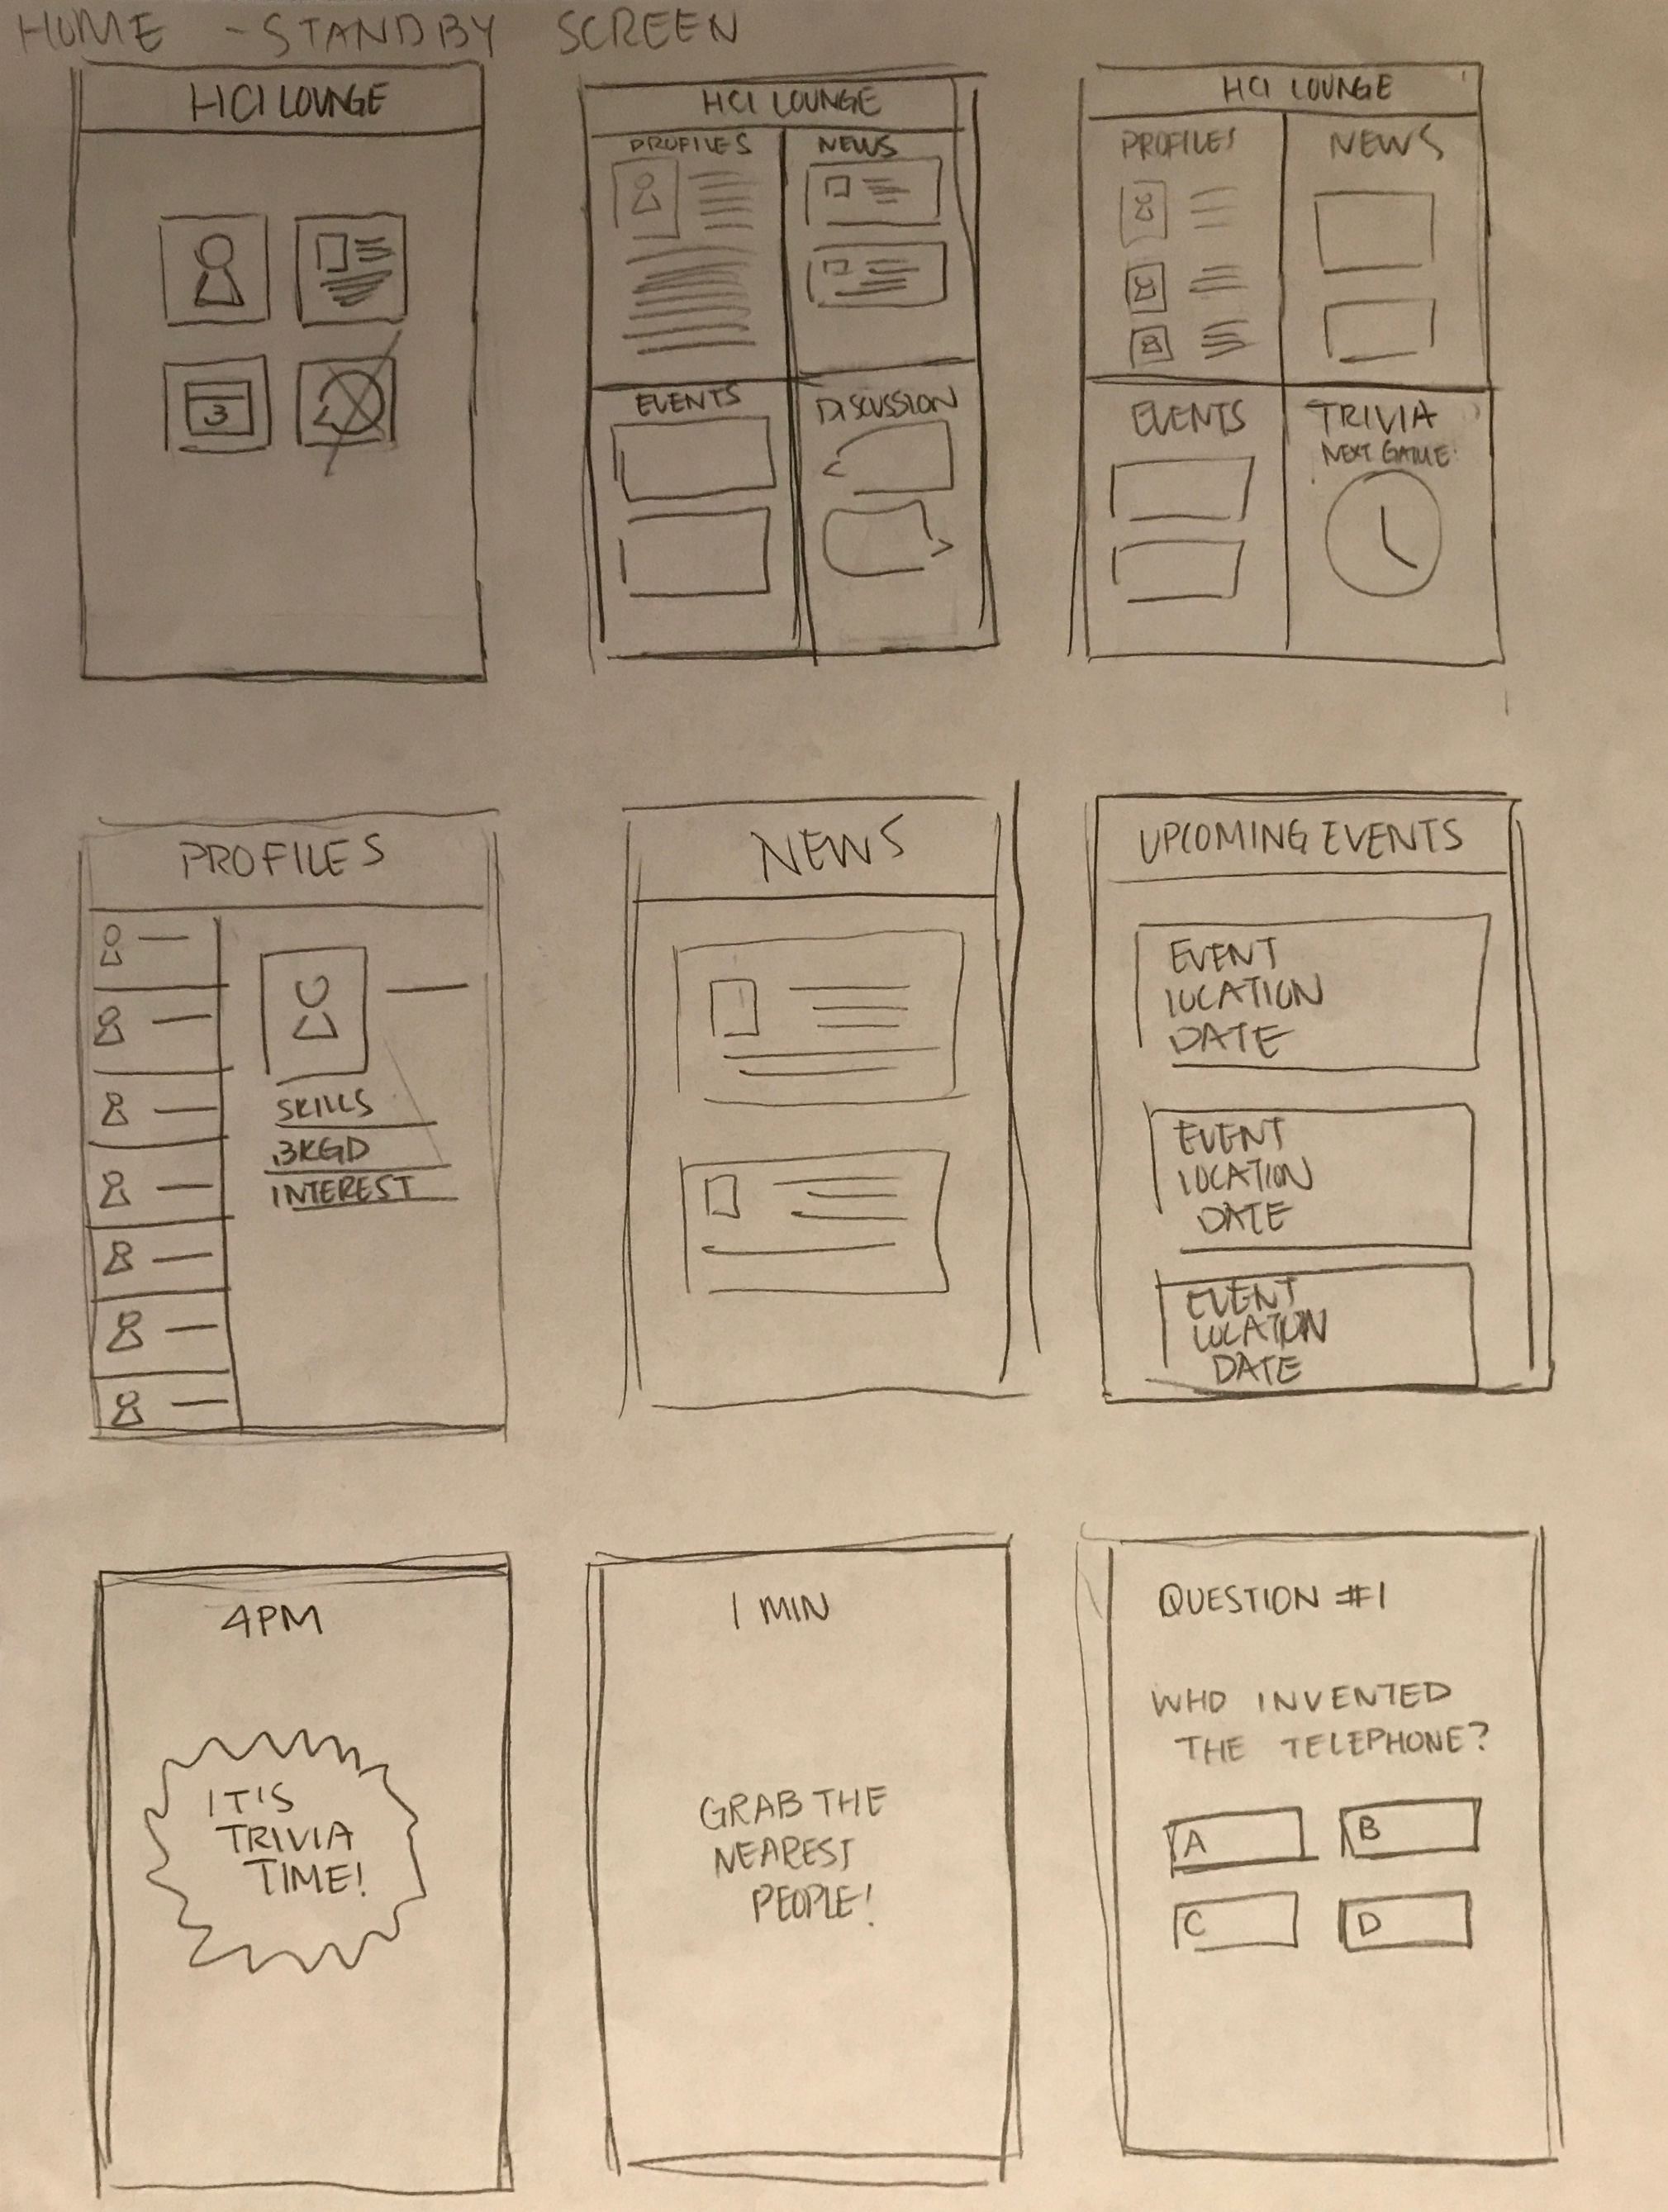 HOME - STANDBY SCREEN
HCI LOUNGE
3
HCI LOUNGE
PROFILES
NEWS
EVENTS
DISCUSSION
HCI LOUNGE
PROFILES
NEWS
EVENTS
TRIVIA
NEXT GAME:
PROFILES
SKILLS
BKGD
INTEREST
NEWS
UPCOMING EVENTS
EVENT
LOCATION
DATE
EVENT
LOCATION
DATE
EVENT
LOCATION
DATE
4PM
IT'S
TRIVIA
TIME!
1 MIN
GRAB THE
NEAREST
PEOPLE!
QUESTION #1
WHO INVENTED
THE TELEPHONE?
A
B
C
D